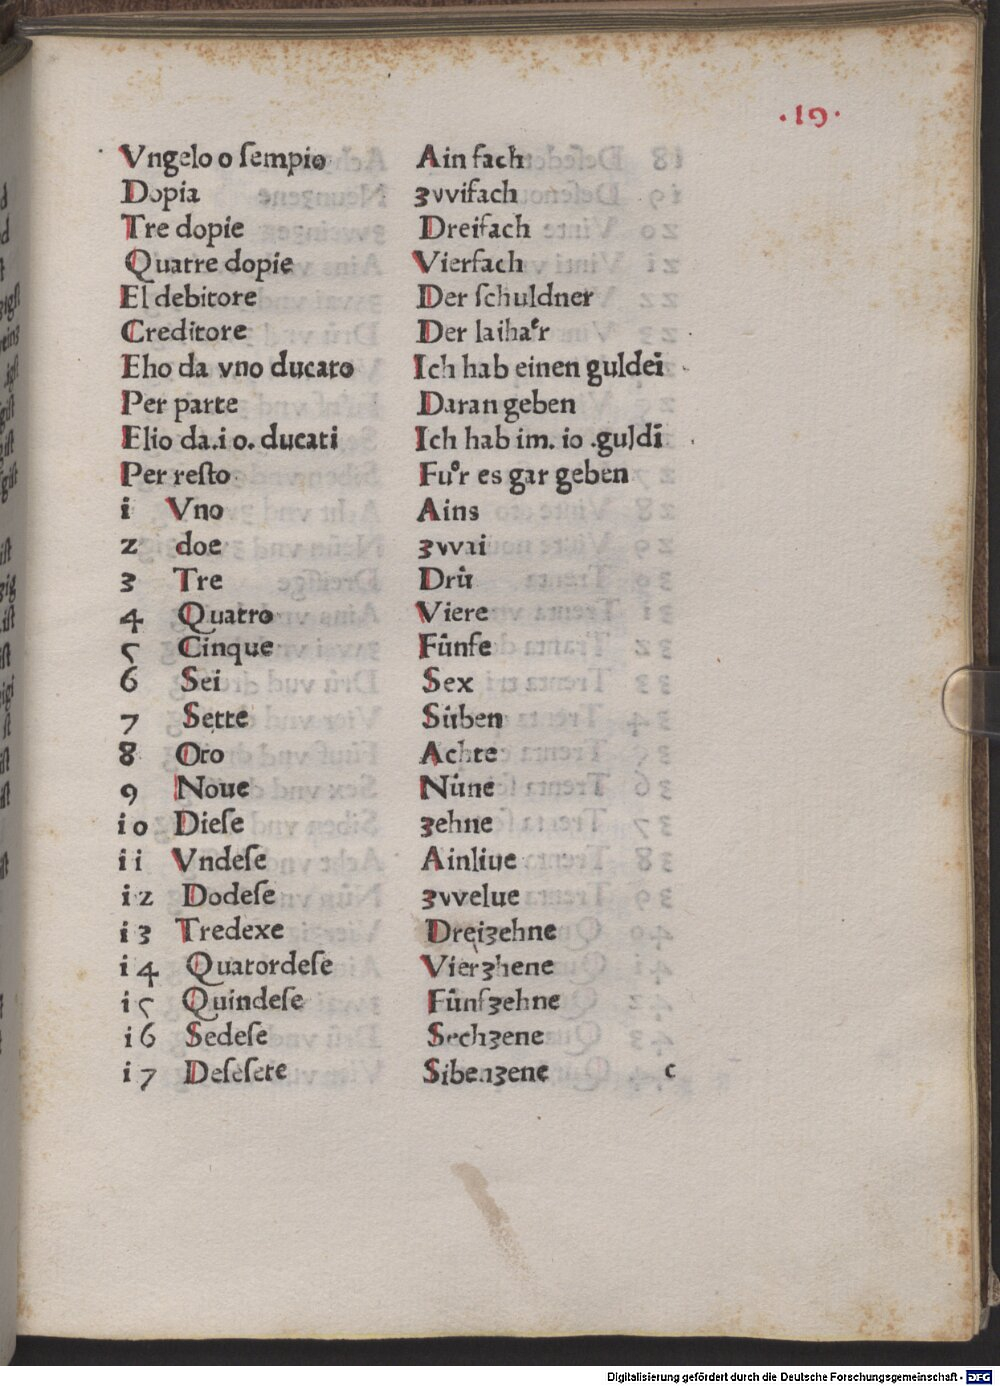 ·19·
Vngelo o ſempio Ain fach
Dopia ʒvvifach
Tre dopie Dreifach
Quatre dopie Vierfach
El debitore Der ſchuldner
Creditore Der laihaͤr
Eho da vno ducato Ich hab einen guldēi
Per parte Daran geben
Elio da.io. ducati Ich hab im. io .guldī
Per reſto Fuͦr es gar geben
i Vno Ains
2 doe ʒvvai
3 Tre Drů
4 Quatro Viere
5 Cinque Fůnfe
6 Sei Sex
7 Sette Sůben
8 Oto Achte
9 Noue Nůne
io Dieſe ʒehne
ii Vndeſe Ainliue
i2 Dodeſe ʒvvelue
i3 Tredexe Dreiʒehne
i4 Quatordeſe Vierʒhene
i5 Quindeſe Fůnfʒehne
i6 Sedeſe Sechʒene
i7 Deſeſete Sibenʒene c
Digitalisierung gefördert durch die Deutsche Forschungsgemeinschaft - DFG